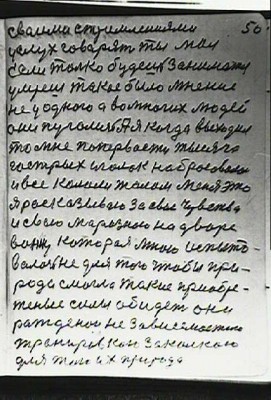 своими стремлениями 50
услух говорят ты мол
если только будешь заниматся
умреш такое было мнение
не у одного а во многих людей
они пугалися А я когда выходил
то мне попервости тысяча
острых иголок набросовало
и все кололи жалом меня это
я россказиваю за свои чувства
и свою марозною на дворе
ванну, которая мною испыто-
валась не для того чтобы при-
роды смогла такие приобре-
теные силы обидеть они
рожденои не зависемостию
тренировкои закалкаю
для того их природа